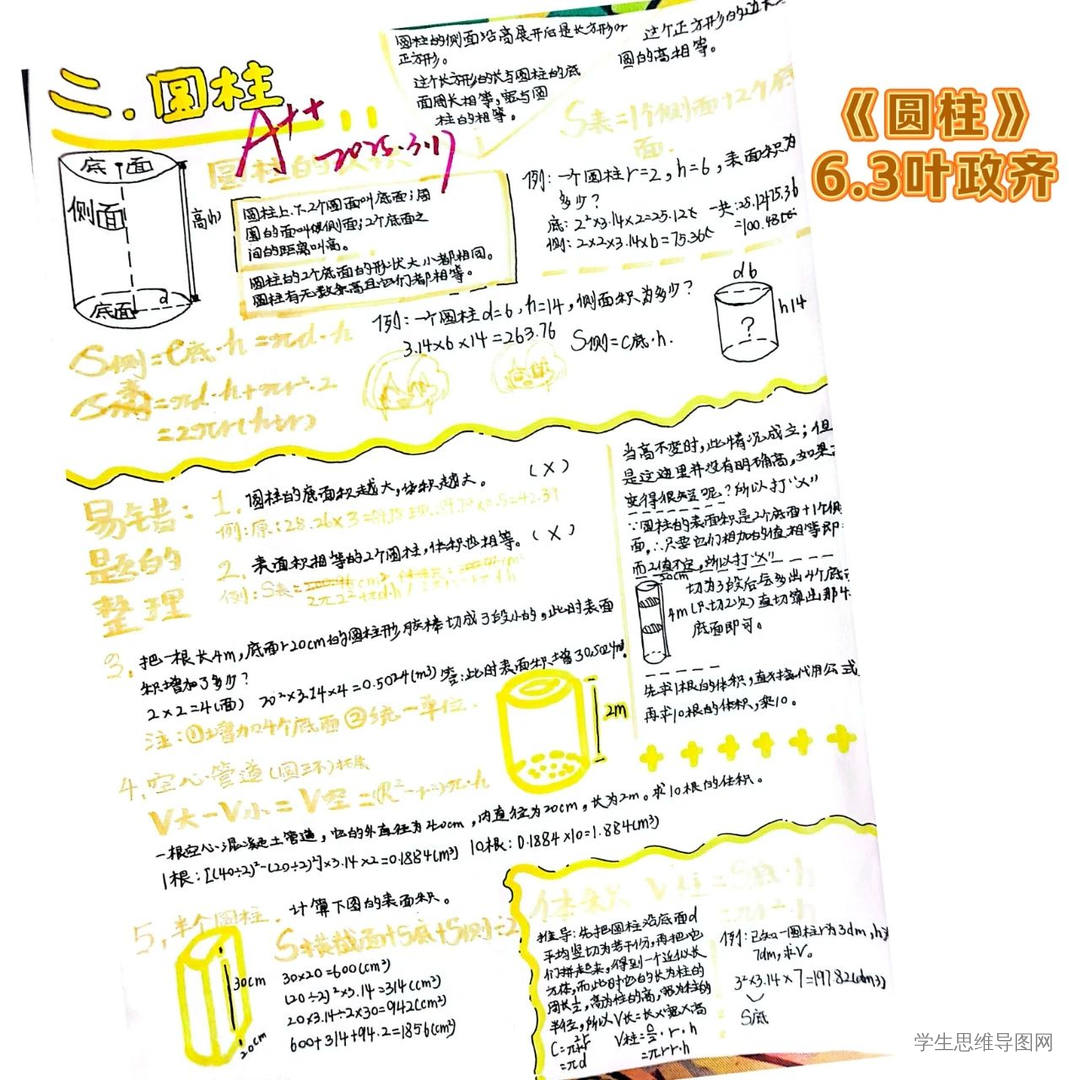 《圆柱》
6.3叶政齐
二.圆柱
A++
2025.3.17
圆柱的侧面沿高展开后是长方形or
正方形。
这个长方形的长与圆柱的底
面周长相等,宽与圆
柱的相等。
这个正方形的边长
圆的高相等。
S表=1个侧面+2个底
面.
底面
侧面
高(h)
底面
d
圆柱的
圆柱上.下2个圆面叫底面;周
围的面叫做侧面;2个底面之
间的距离叫高。
圆柱的2个底面的形状大小都相同。
圆柱有无数条高且它们都相等。
例:一个圆柱r=2,h=6,表面积为
多少?
底:2²×3.14×2=25.12
侧:2×2×3.14×6=75.36
一共:
=100.48
例:一个圆柱d=6,h=14,侧面积为多少?
3.14×6×14=263.76
S侧=C底·h.
d 6
h14
?
S侧=C底·h=πd·h
S表=πd·h+πr²·2
=2πr(h+r)
易错:
题的
整理
1.圆柱的底面积越大,体积越大。 (×)
例:原:28.26×3=
2.表面积相等的2个圆柱,体积也相等。(×)
例:S表=
3.把一根长4m,底面r20cm的圆柱形 棒切成3段小的,此时表面
积增加了多少?
2×2=4(面) 20²×3.14×4=0.5024(m³) 答:此时表面积增
注:①增加4个底面②统一单位.
当高不变时,此情况成立;但
是这里并没有明确高,如果
变得很短呢?所以打"×"
∵圆柱的表面积是2个底面+1个侧
面,∴只要它们相加的值相等即
而2值不定,所以打"×"
20cm
4m
切为3段后会多出4个底
(只切2次)直切算出那4
底面即可。
先求1根的体积,直接代用公式
再求10根的体积,乘10。
2m
4.空心管道(圆环)拓展
V大-V小=V空=(R²-r²)π·h
一根空心混凝土管道,它的外直径为40cm,内直径为20cm,长为2m。求10根的体积。
1根:[(40÷2)²-(20÷2)²]×3.14×2=0.1884(m³) 10根:0.1884×10=1.884(m³)
5,半个圆柱. 计算下图的表面积。
S横截面+S底+S侧÷2
30cm
20cm
30×20=600(cm²)
(20÷2)²×3.14=314(cm²)
20×3.14÷2×30=942(cm²)
600+314+94.2=1856(cm²)
体积 V柱=S底·h
=πr²·h
推导:先把圆柱沿底面d
平均竖切为若干份,再把它
们拼起来,得到一个近似长
方体,而此时它的长为柱的
周长½,高为柱的高,宽为柱的
半径,所以V长=长×宽×高
V柱=
=πrr·h
=πd
例:已知一圆柱r为3dm,h为
7dm,求V。
3²×3.14×7=197.82(dm³)
S底
学生思维导图网